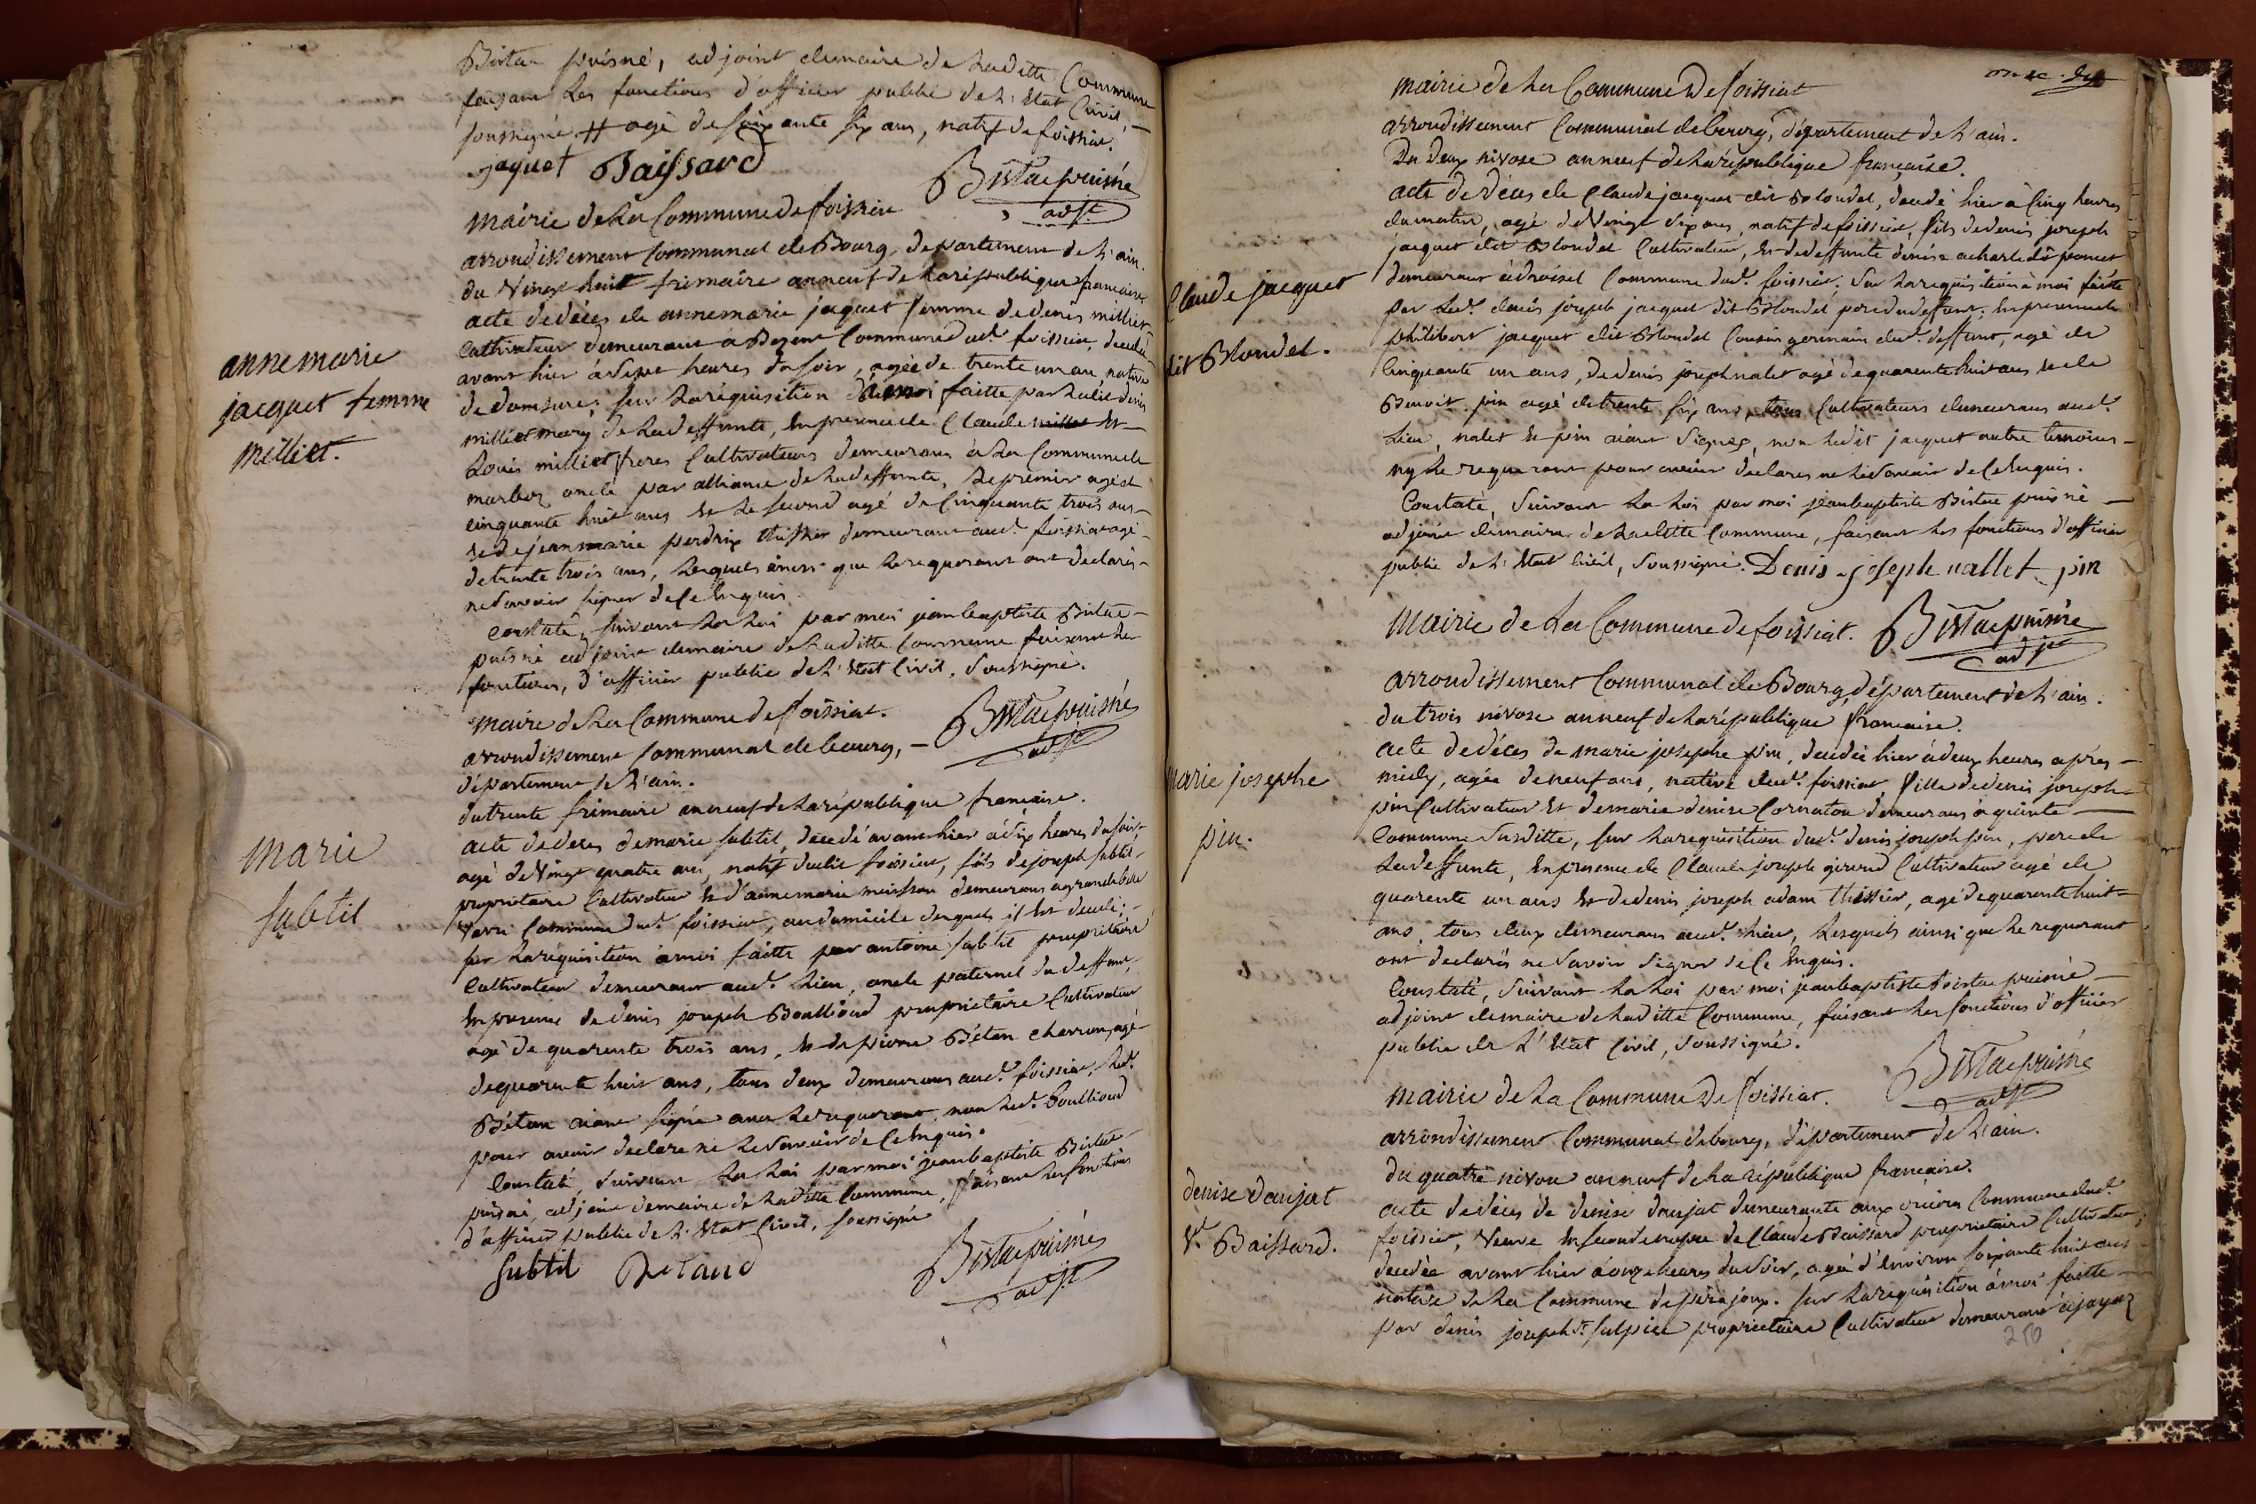 Bistac puisné, adjoint du maire de Laditte Commune
faisant Les fonctions d'officier public de L'Etat Civil,
soussigné # agé de soixante six ans, natif de foissiat.
Jaquet Baissard
Bistac puisné
adjt
Mairie de La Commune de foissiat
arrondissement Communal de Bourg, departement de L'ain.
du Vingt huit frimaire an neuf de La république francaise
acte de décès de annemarie jaquet femme de denis milliet
Cultivateur demeurant à Commune dud. foissiat, decedé
avant hier à heures du soir, agée de trente un an native
de domsure, sur La réquisition à moi faitte par Ledit denis
milliet mary de La deffunte, En presence de Claude Et
Louis milliet freres Cultivateurs demeurans à La Commune de
marboz oncle par alliance de La deffunte, Le premier agé de
cinquante huit ans Et Le second agé de Cinquante trois ans
et de jeanmarie perdrix thissier demeurant aud. foissiat agé
de trente trois ans, Lesquels ainsi que Le requerant ont declarés
ne savoir signer de Ce Enquis.
Constaté, suivant La Loi par moi jeanbaptiste Bistac
puisné adjoint du maire de Laditte Commune faisant Les
fonctions, d'officier public de L'Etat Civil, Soussigné.
annemarie
jacquet femme
Milliet.
Bistac puisné
adjt
Mairie de La Commune de foissiat.
arrondissement Communal de bourg,
département de L'ain.
du trente frimaire an neuf de La république francaise.
acte de deces de marie subtil, decedé avant hier à dix heures du soir,
agé de Vingt quatre ans, natif dudit foissiat, fils de joseph subtil
proprietaire Cultivateur Et d'annemarie demeurans
Commune dud. foissiat, au domicile desquels il Est decedé;
sur La réquisition à moi faitte par antoine subtil proprietaire
Cultivateur demeurant aud. Lieu, oncle paternel du deffunt,
En presence de denis joseph Boullioud proprietaire Cultivateur
agé de quarente trois ans, Et de pierre Bétan charron, agé
de quarente huit ans, tous deux demeurans aud. foissiat, Led.
Bétan aiant signé avec Le requerant non Led. Boullioud
pour avoir declaré ne Le savoir de Ce Enquis.
Constaté, suivant La Loi par moi jeanbaptiste Bistac
puisné, adjoint du maire de Laditte Commune, faisant Les fonctions
d'officier public de L'Etat Civil, soussigné
Marie
Subtil
Subtil Betand
Bistac puisné
adjt
Mairie de La Commune De foissiat
arrondissement Communal de bourg, département de L'ain.
Du deux nivose an neuf de La république francaise.
acte de décès de Claude jacquet dit Blondel, decedé hier à Cinq heures
du matin, agé de Vingt six ans, natif de foissiat, fils de denis joseph
jacquet dit Blondel Cultivateur, Et de deffunte denise
demeurant à Commune dud. foissiat. Sur La requisition à moi faitte
par Led. denis joseph jacquet dit Blondel pere du deffunt. En presence de
philibert jacquet dit Blondel Cousin germain dud. deffunt, agé de
Cinquante un ans, de denis joseph nalet agé de quarente huit ans et de
Benoit pin agé de trente six ans, tous Cultivateurs demeurans aud.
Lieu, nalet Et pin aiant Signés, non Ledit jacquet autre temoins
ny Le requerant pour avoir declarés ne Le savoir de Ce Enquis.
Constaté, Suivant La Loi par moi jeanbaptiste Bistac puisné
adjoint du maire de Laditte Commune, faisant Les fonctions d'officier
public de L'Etat Civil, Soussigné. Denis joseph nallet pin
Claude jacquet
dit Blondel.
Bistac puisné
adjt
Mairie de La Commune de foissiat.
arrondissement Communal de Bourg, département de L'ain.
du trois nivose an neuf de La république francaise.
acte de décès de marie josephe pin, decedée hier à deux heures après
midy, agée de neuf ans, native dud. foissiat, fille de denis joseph
pin Cultivateur Et de marie denise Cornaton demeurans à quinte
Commune Susditte, sur La requisition dud. denis joseph pin, pere de
La deffunte, En presence de Claude joseph girard Cultivateur agé de
quarente un ans Et de denis joseph adam thissier, agé de quarente huit
ans, tous deux demeurans aud. Lieu, Lesquels ainsi que Le requerant
ont declarés ne Savoir Signer de Ce Enquis.
Constaté, Suivant La Loi par moi jeanbaptiste Bistac puisné
adjoint du maire de Laditte Commune, faisant Les fonctions d'officier
public de L'Etat Civil, Soussigné.
marie josephe
pin.
Bistac puisné
adjt
Mairie de La Commune De foissiat.
arrondissement Communal de bourg, département de L'ain.
Du quatre nivose an neuf de La république francaise.
acte de décès de denise daujat demeurante aux Commune dud.
foissiat, Veuve En secondes nopces de Claude Baissard proprietaire Cultivateur,
decedée avant hier à onze heures du soir, agée d'Environ soixante huit ans
native de La Commune de pirajoux. sur La requisition à moi faitte
par denis joseph sulpice proprietaire Cultivateur demeurant à jayat
denise daujat
Ve. Baissard.
250